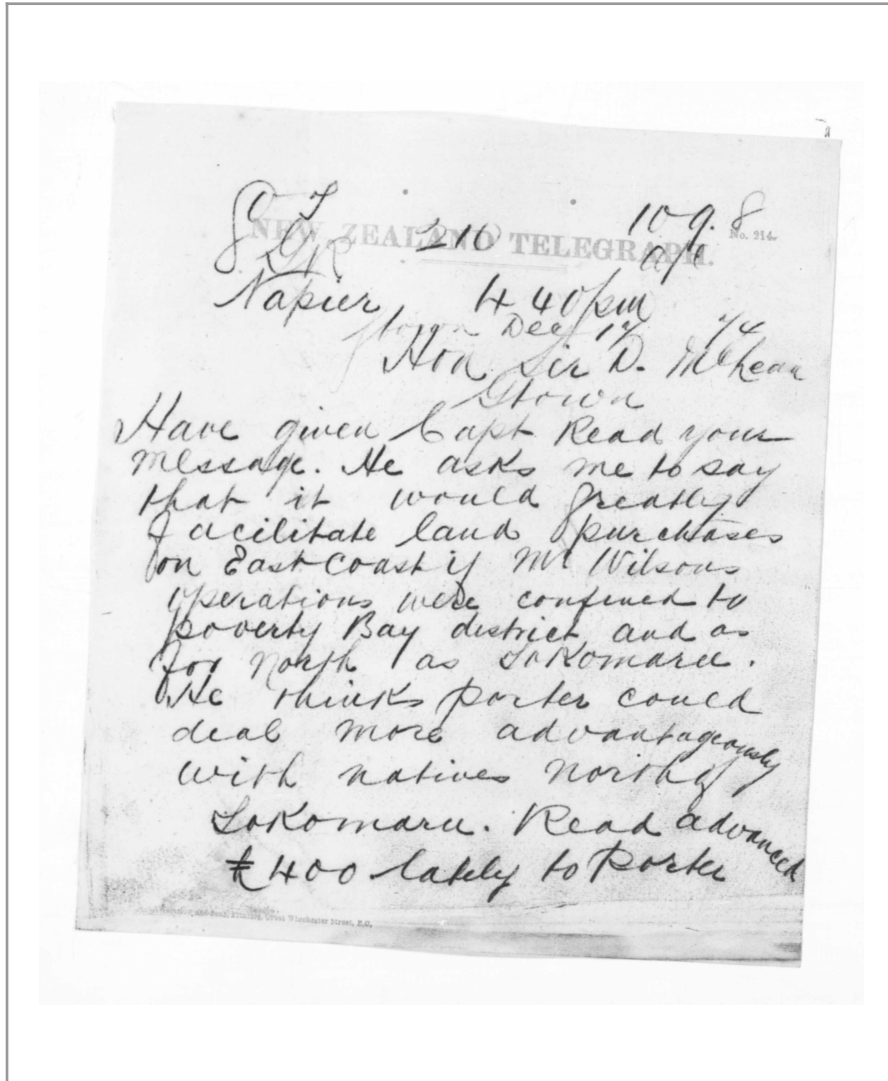 O T 10 9. 8
NEW ZEALAND TELEGRAPH. No. 214.
Napier 4 40 pm
Gtown Dec 17 74
Hon Sir D. McLean
Gtown
Have given Capt Read your
message. He asks me to say
that it would greatly
facilitate land purchases
on East coast if Mr Wilsons
operations were confined to
poverty Bay district and as
far north as Tokomaru.
He thinks porter could
deal more advantageously
with natives north of
Tokomaru. Read advanced
£400 lately to Porter
Great Winchester Street, E.C.